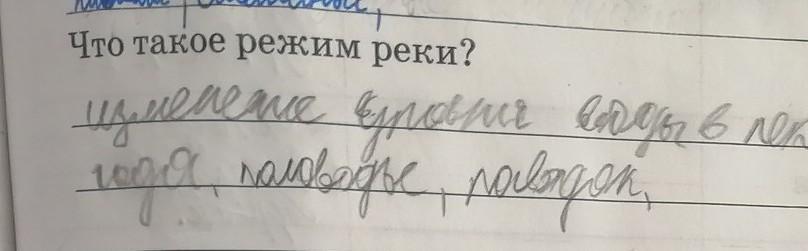 Что такое режим реки?
изменение уровня воды в
года, половодье, паводок,